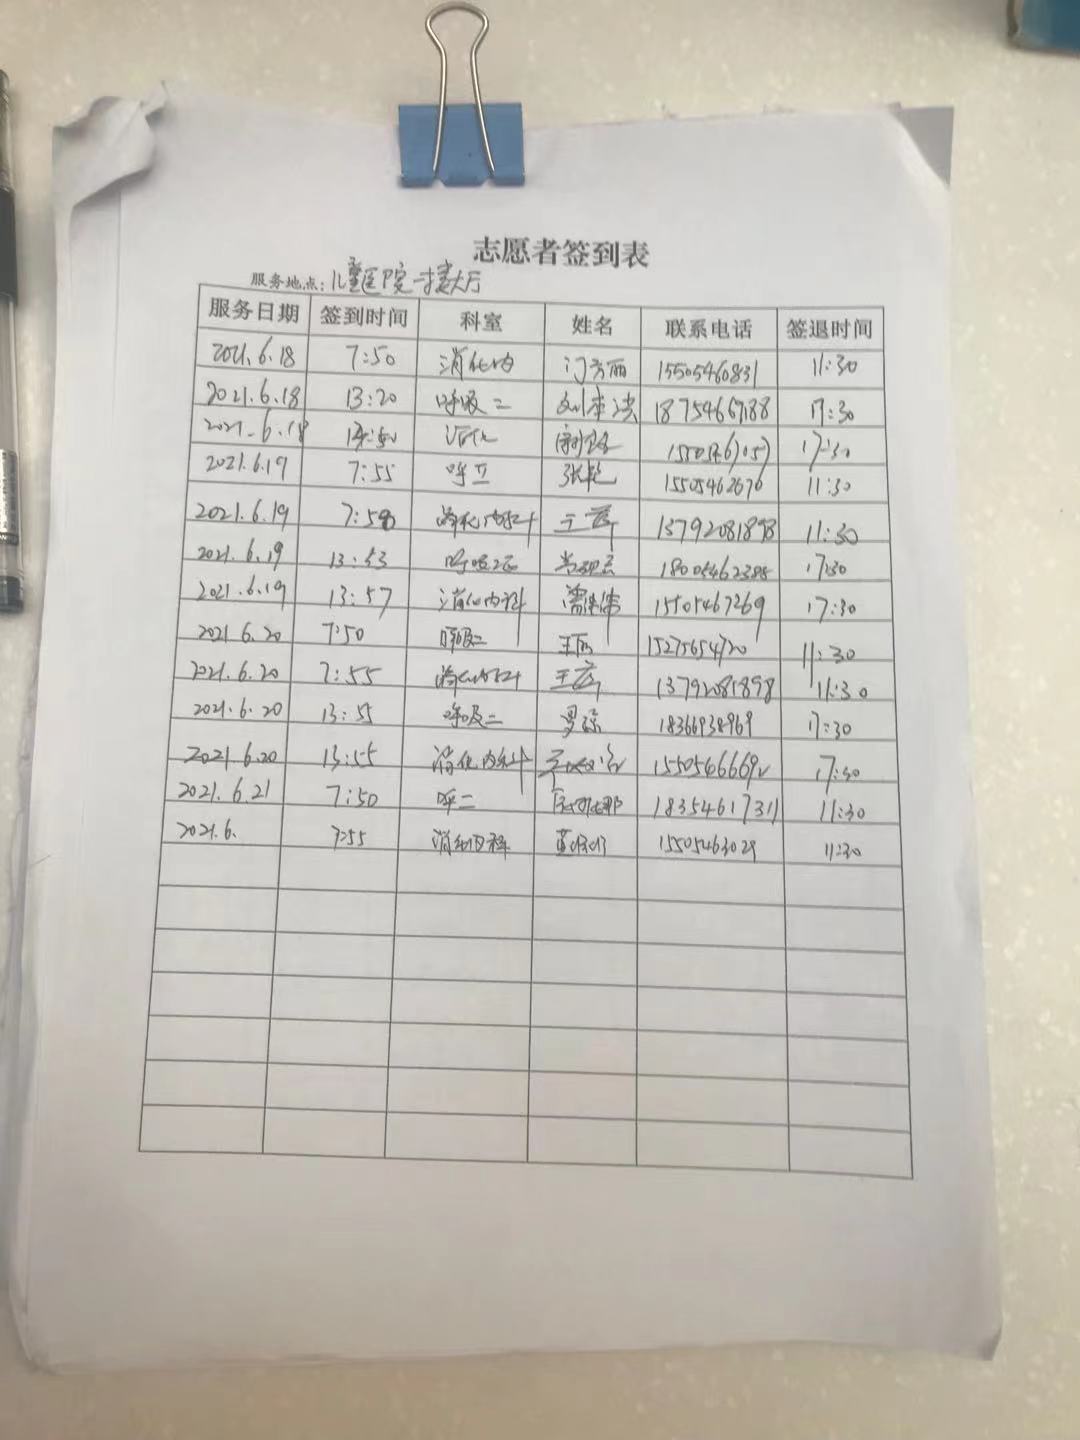 志愿者签到表
服务地点：儿童医院一楼大厅
服务日期 签到时间 科室 姓名 联系电话 签退时间
2021.6.18 7:50 消化内 门芳丽 15505460831 11:30
2021.6.18 13:20 呼吸二 17:30
2021.6.18 消化 17:30
2021.6.19 7:55 呼二 张艳 15505462676 11:30
2021.6.19 7:58 消化内科 13792081898 11:30
2021.6.19 13:53 17:30
2021.6.19 13:57 消化内科 15505467269 17:30
2021.6.20 7:50 呼吸二 王丽 15275654720 11:30
2021.6.20 7:55 消化内科 13792081898 11:30
2021.6.20 13:55 呼吸二 18366938969 17:30
2021.6.20 13:55 消化内科 17:30
2021.6.21 7:50 呼二 18354617311 11:30
2021.6. 7:55 消化内科 15505463029 11:30